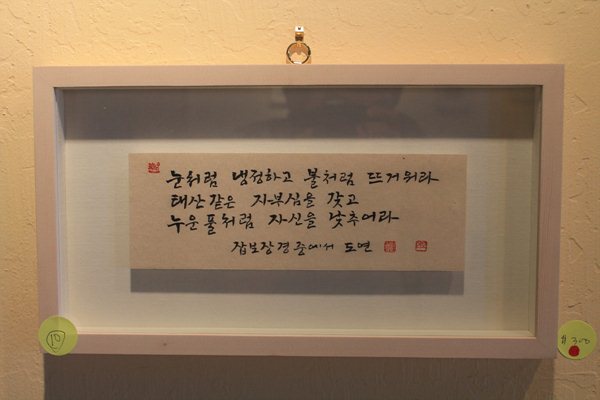 눈처럼 냉정하고 불처럼 뜨거워라
태산같은 자부심을 갖고
누운풀처럼 자신을 낮추어라
잡보장경 중에서 도연
10
$300